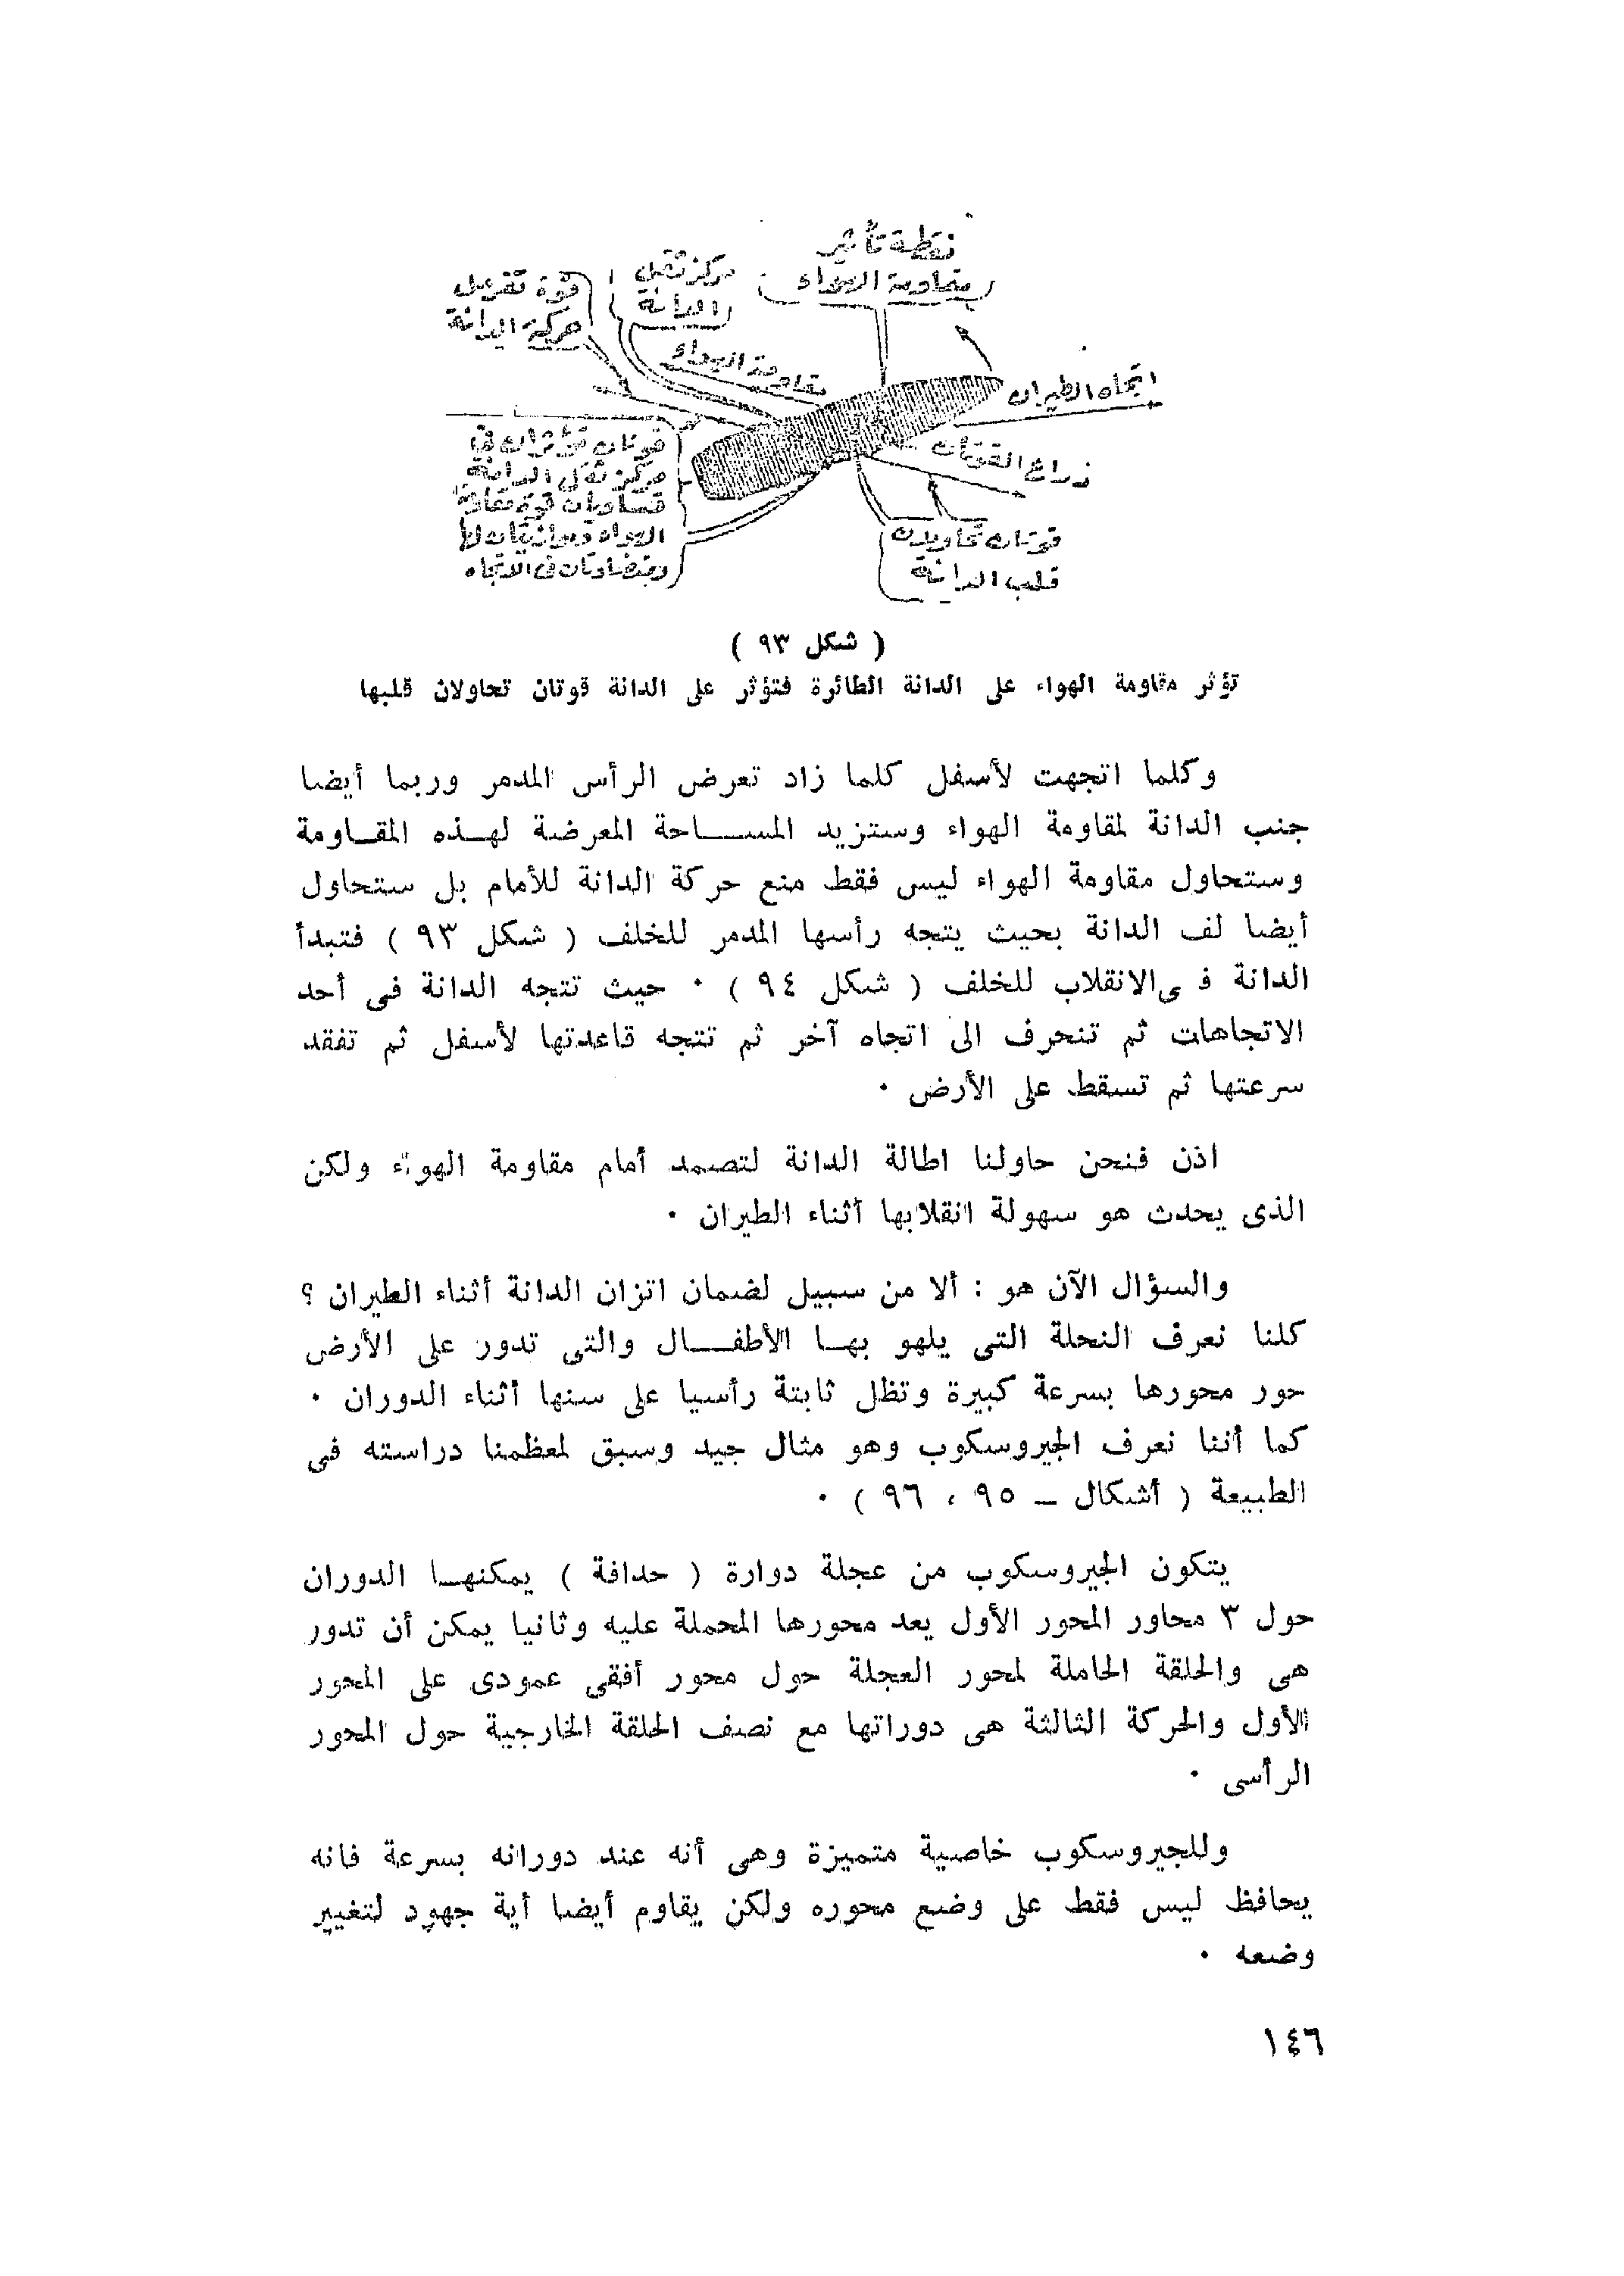 نقطة تأثير
مقاومة الهواء
مركز ثقل
الدانة
قوة تعرقل
حركة الدانة
مقاومة الهواء
اتجاه الطيران
ذراع القوتان
قوتان تؤثران في
مركز ثقل الدانة
قوة مقاومة
الهواء
ومتضادتان فى الاتجاه
قوتان تحاولان
قلب الدانة
( شكل ٩٣ )
تؤثر مقاومة الهواء على الدانة الطائرة فتؤثر على الدانة قوتان تحاولان قلبها
وكلما اتجهت لأسفل كلما زاد تعرض الرأس المدمر وربما أيضا
جنب الدانة لمقاومة الهواء وستزيد المساحة المعرضة لهذه المقاومة
وستحاول مقاومة الهواء ليس فقط منع حركة الدانة للأمام بل ستحاول
أيضا لف الدانة بحيث يتجه رأسها المدمر للخلف ( شكل ٩٣ ) فتبدأ
الدانة ف ى الانقلاب للخلف ( شكل ٩٤ ) ٠ حيث تتجه الدانة فى أحد
الاتجاهات ثم تنحرف الى اتجاه آخر ثم تتجه قاعدتها لأسفل ثم تفقد
سرعتها ثم تسقط على الأرض ٠
اذن فنحن حاولنا اطالة الدانة لتصمد أمام مقاومة الهواء ولكن
الذى يحدث هو سهولة انقلابها أثناء الطيران ٠
والسؤال الآن هو : ألا من سبيل لضمان اتزان الدانة أثناء الطيران ؟
كلنا نعرف النحلة التى يلهو بها الأطفال والتى تدور على الأرض
حور محورها بسرعة كبيرة وتظل ثابتة رأسيا على سنها أثناء الدوران ٠
كما أننا نعرف الجيروسكوب وهو مثال جيد وسبق لمعظمنا دراسته فى
الطبيعة ( أشكال – ٩٥ ، ٩٦ ) ٠
يتكون الجيروسكوب من عجلة دوارة ( حدافة ) يمكنها الدوران
حول ٣ محاور المحور الأول يعد محورها المحملة عليه وثانيا يمكن أن تدور
هى والحلقة الحاملة لمحور العجلة حول محور أفقى عمودى على المحور
الأول والحركة الثالثة هى دوراتها مع نصف الحلقة الخارجية حول المحور
الرأسى ٠
وللجيروسكوب خاصية متميزة وهى أنه عند دورانه بسرعة فانه
يحافظ ليس فقط على وضع محوره ولكن يقاوم أيضا أية جهود لتغيير
وضعه ٠
١٤٦